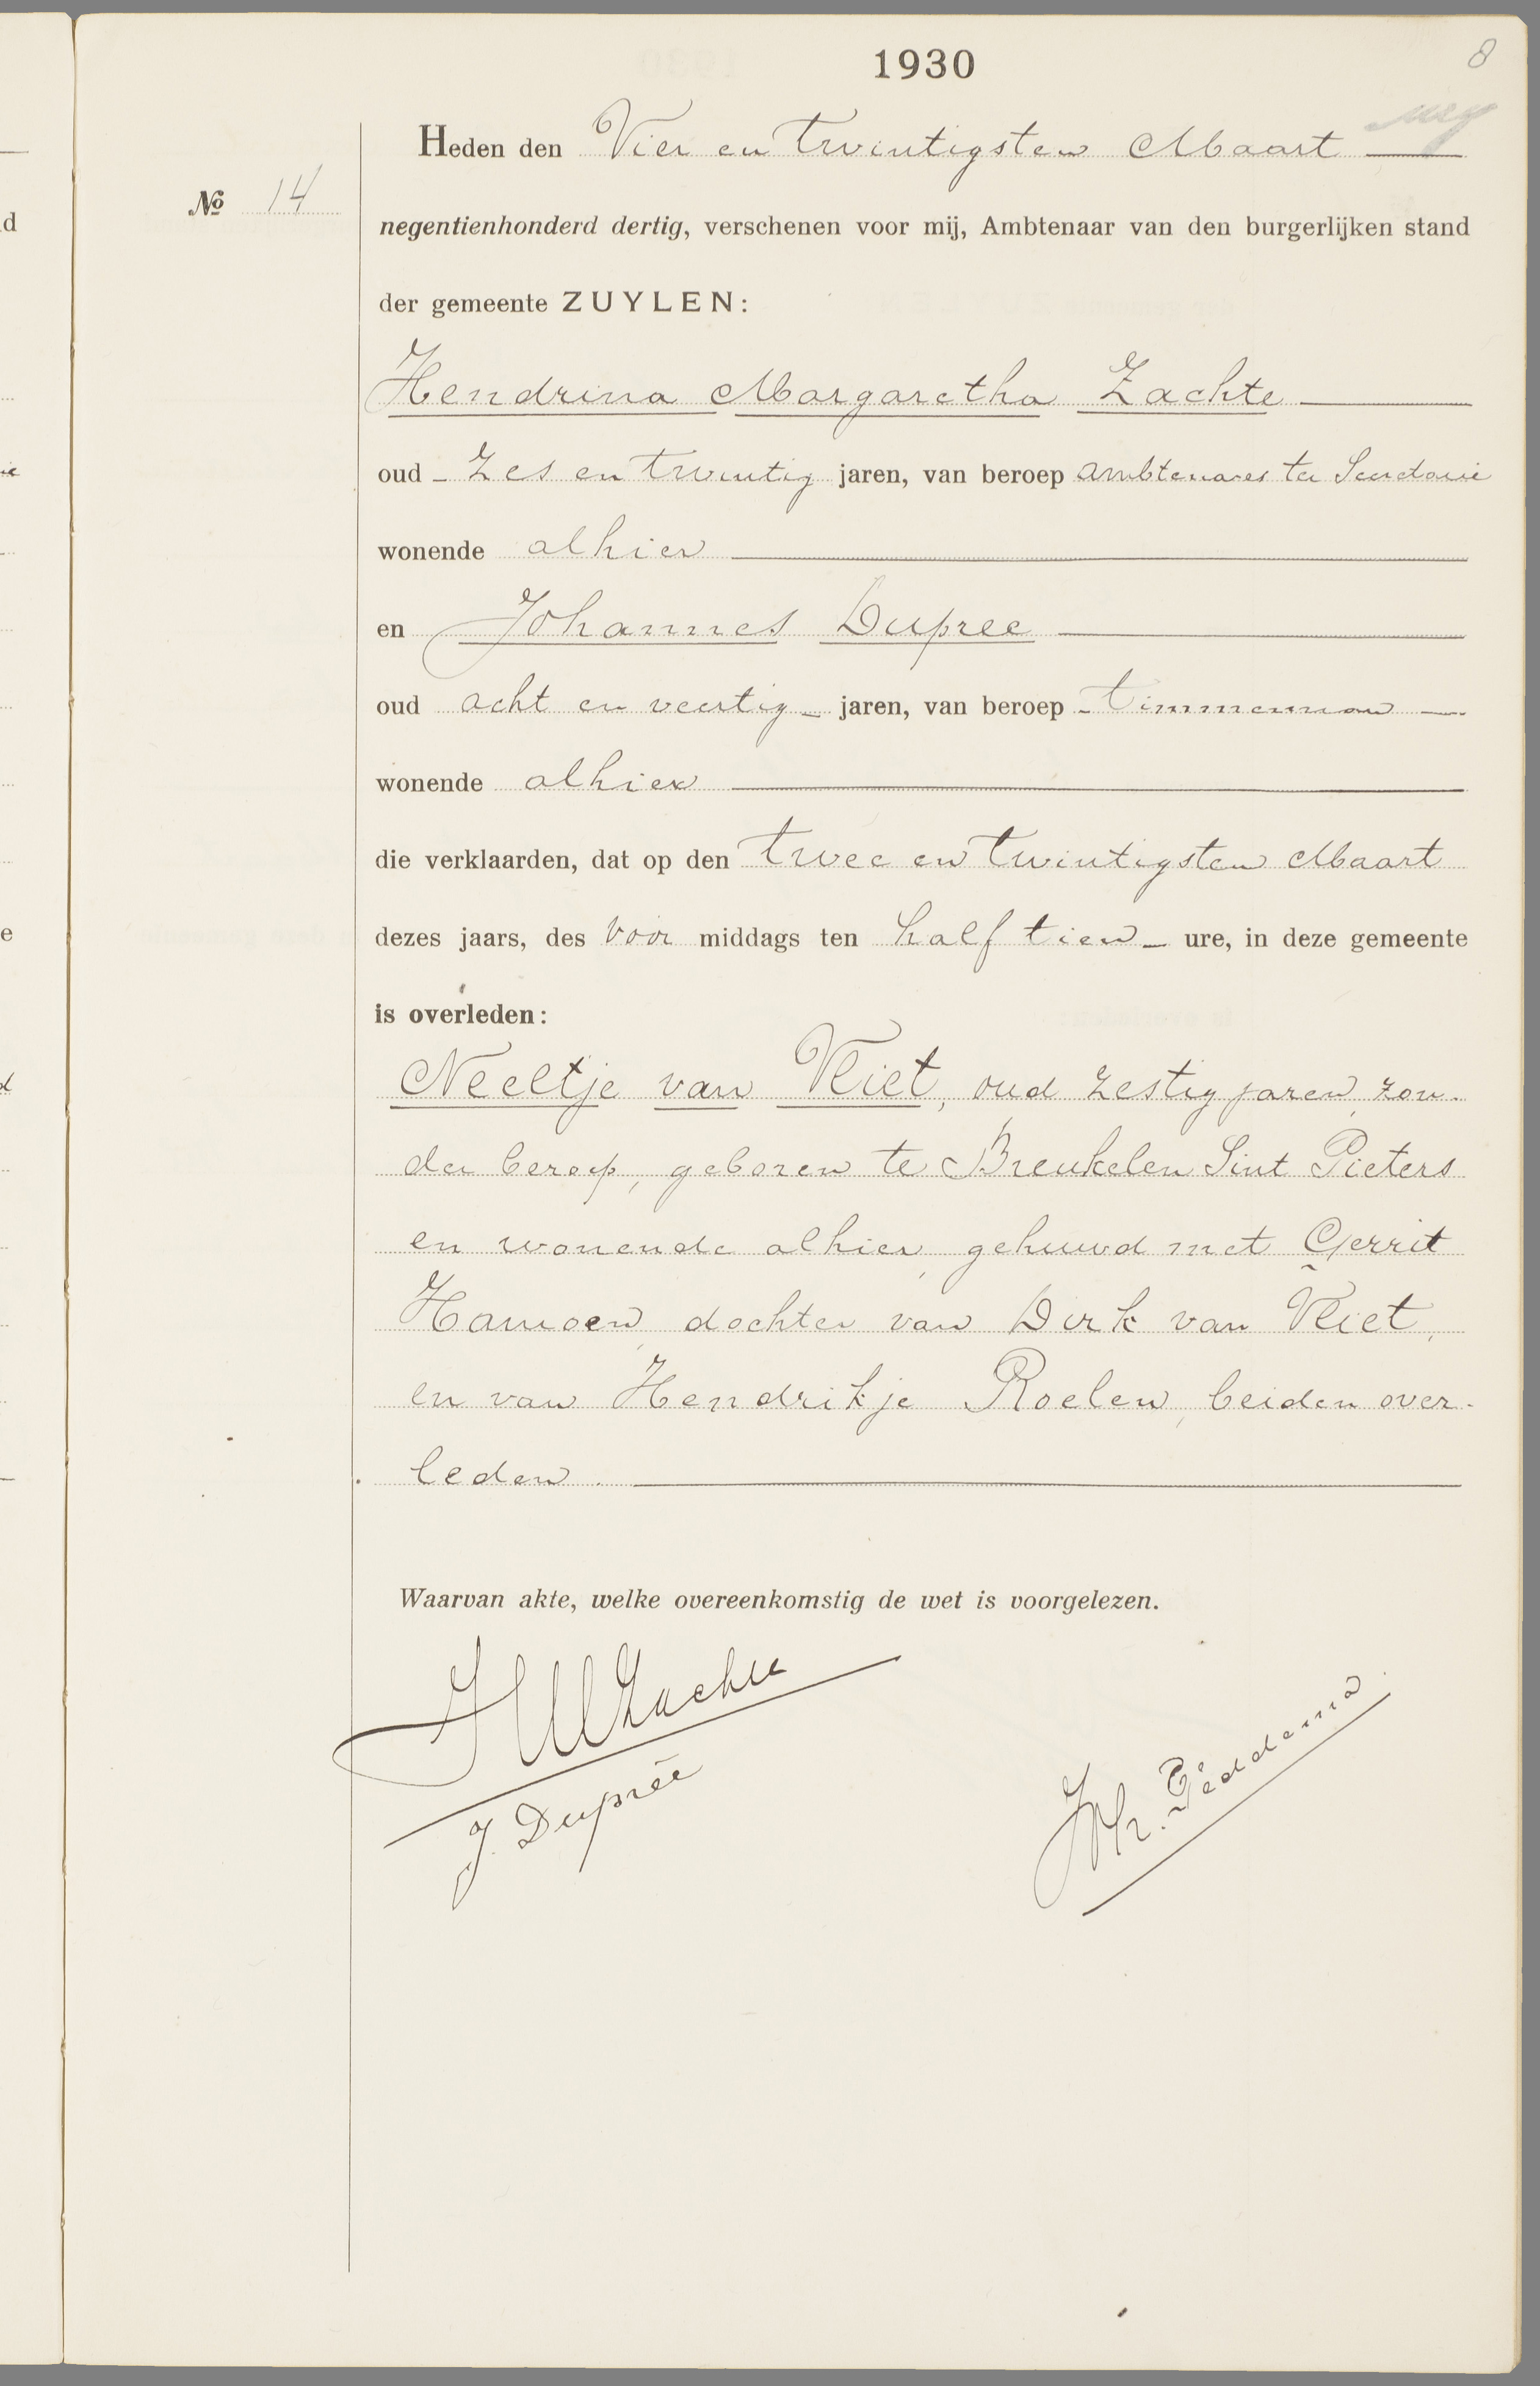 1930
8
Heden den Vier en Twintigsten Maart
No 14
negentienhonderd dertig, verschenen voor mij, Ambtenaar van den burgerlijken stand
der gemeente ZUYLEN:
Hendrina Margaretha Zachte
oud - Zes en Twintig jaren, van beroep ambtenares ter Secretarie
wonende alhier
en Johannes Dupree
oud acht en veertig - jaren, van beroep - Timmerman -
wonende alhier
die verklaarden, dat op den Twee en Twintigsten Maart
dezes jaars, des voor middags ten half tien - ure, in deze gemeente
is overleden:
Neeltje van Vliet, oud zestig jaren, zon-
der beroep, geboren te Breukelen Sint Pieters
en wonende alhier, gehuwd met Gerrit
Hamoen, dochter van Dirk van Vliet,
en van Hendrikje Roelen, beiden over-
leden.
Waarvan akte, welke overeenkomstig de wet is voorgelezen.
HMZachte
J. Duprée